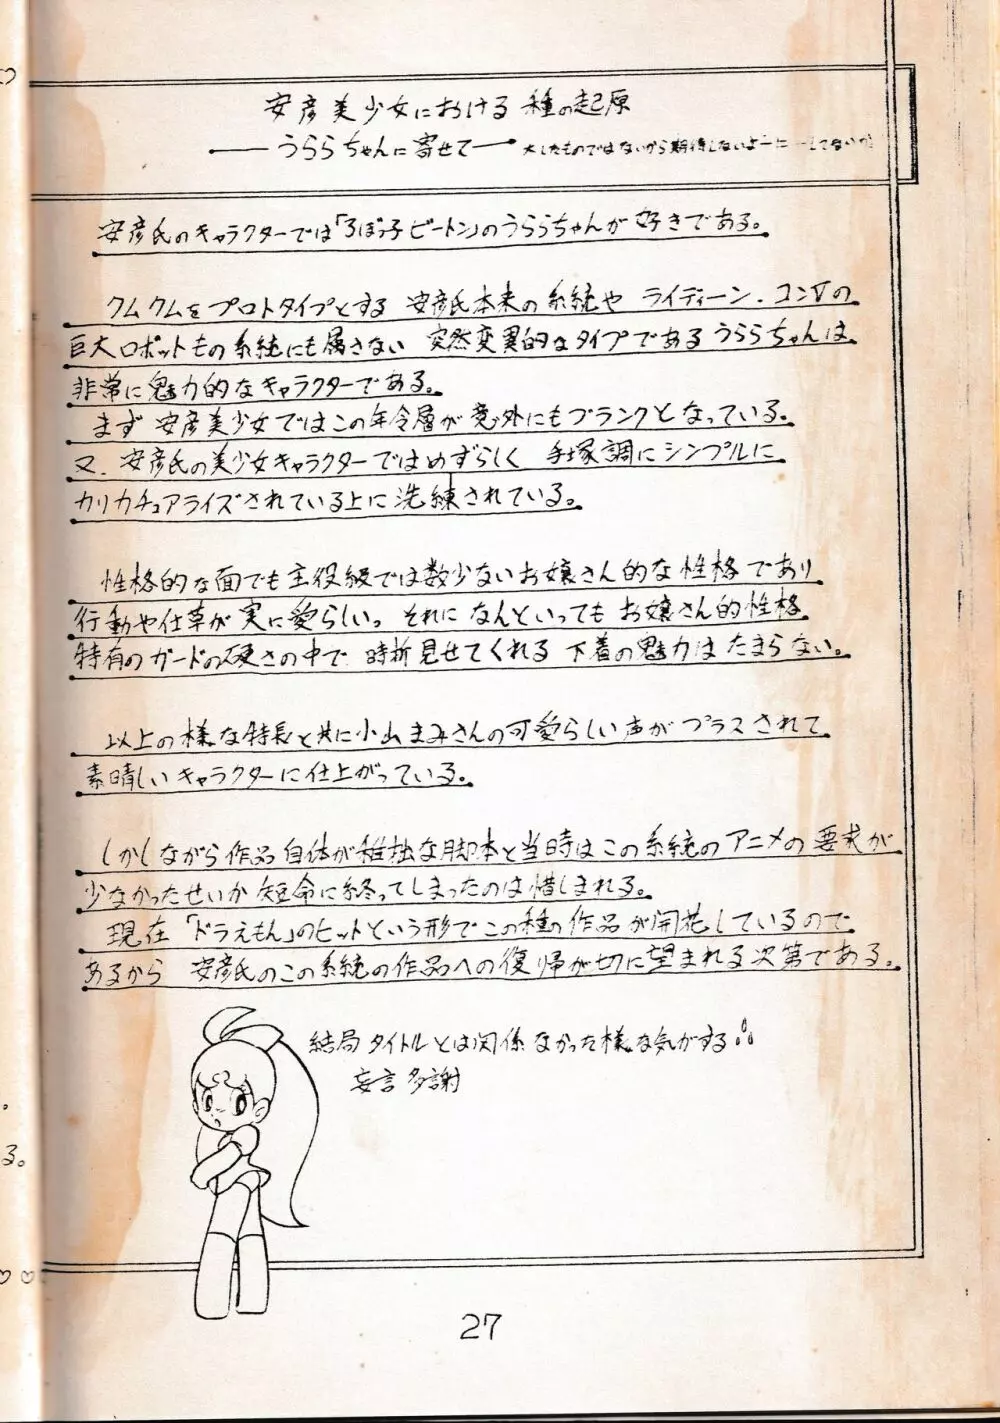 安彦美少女における 種の起原
うららちゃんに寄せて 大したものではないから期待しないよーに ーしてないか
安彦氏のキャラクターでは「ろぼっ子ビートン」のうららちゃんが好きである。
クムクムをプロトタイプとする 安彦氏本来の系統や ライディーン.コンVの
巨大ロボットもの系統にも属さない 突然変異的なタイプであるうららちゃんは
非常に魅力的なキャラクターである。
まず 安彦美少女ではこの年令層が意外にもブランクとなっている。
又、安彦氏の美少女キャラクターではめずらしく 手塚調にシンプルに
カリカチュアライズされている上に洗練されている。
性格的な面でも主役級では数少ないお嬢さん的な性格であり
行動や仕草が実に愛らしい。それになんといってもお嬢さん的性格
特有のガードの硬さの中で 時折見せてくれる 下着の魅力はたまらない。
以上の様な特長と共に小山まみさんの可愛らしい声がプラスされて
素晴しいキャラクターに仕上がっている。
しかしながら作品自体が稚拙な脚本と当時はこの系統のアニメの要求が
少なかったせいか短命に終ってしまったのは惜しまれる。
現在「ドラえもん」のヒットという形でこの種の作品が開花しているので
あるから 安彦氏のこの系統の作品への復帰が切に望まれる次第である。
結局タイトルとは関係なかった様な気がする
妄言多謝
る。
27